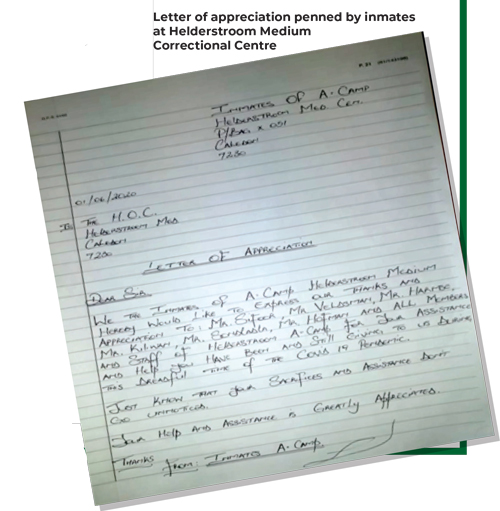 Letter of appreciation penned by inmates
at Helderstroom Medium
Correctional Centre
INMATES OF A-CAMP
HELDERSTROOM MED CEN.
P/BAG X 051
CALEDON
7230
01/06/2020
TO THE H.O.C.
HELDERSTROOM MED
CALEDON
7230
LETTER OF APPRECIATION
DEAR SIR
WE THE INMATES OF A-CAMP HELDERSTROOM MEDIUM
HEREBY WOULD LIKE TO EXPRESS OUR THANKS AND
APPRECIATION TO: MR. VELDSMAN, MR.
MR. MR. MR. AND ALL MEMBERS
AND STAFF OF HELDERSTROOM A-CAMP FOR YOUR ASSISTANCE
AND HELP YOU HAVE BEEN AND STILL GIVING TO US DURING
THIS DREADFUL TIME OF THE COVID 19 PANDEMIC.
JUST KNOW THAT YOUR SACRIFICES AND ASSISTANCE DON'T
GO UNNOTICED.
YOUR HELP AND ASSISTANCE IS GREATLY APPRECIATED.
THANKS FROM: INMATES A-CAMP